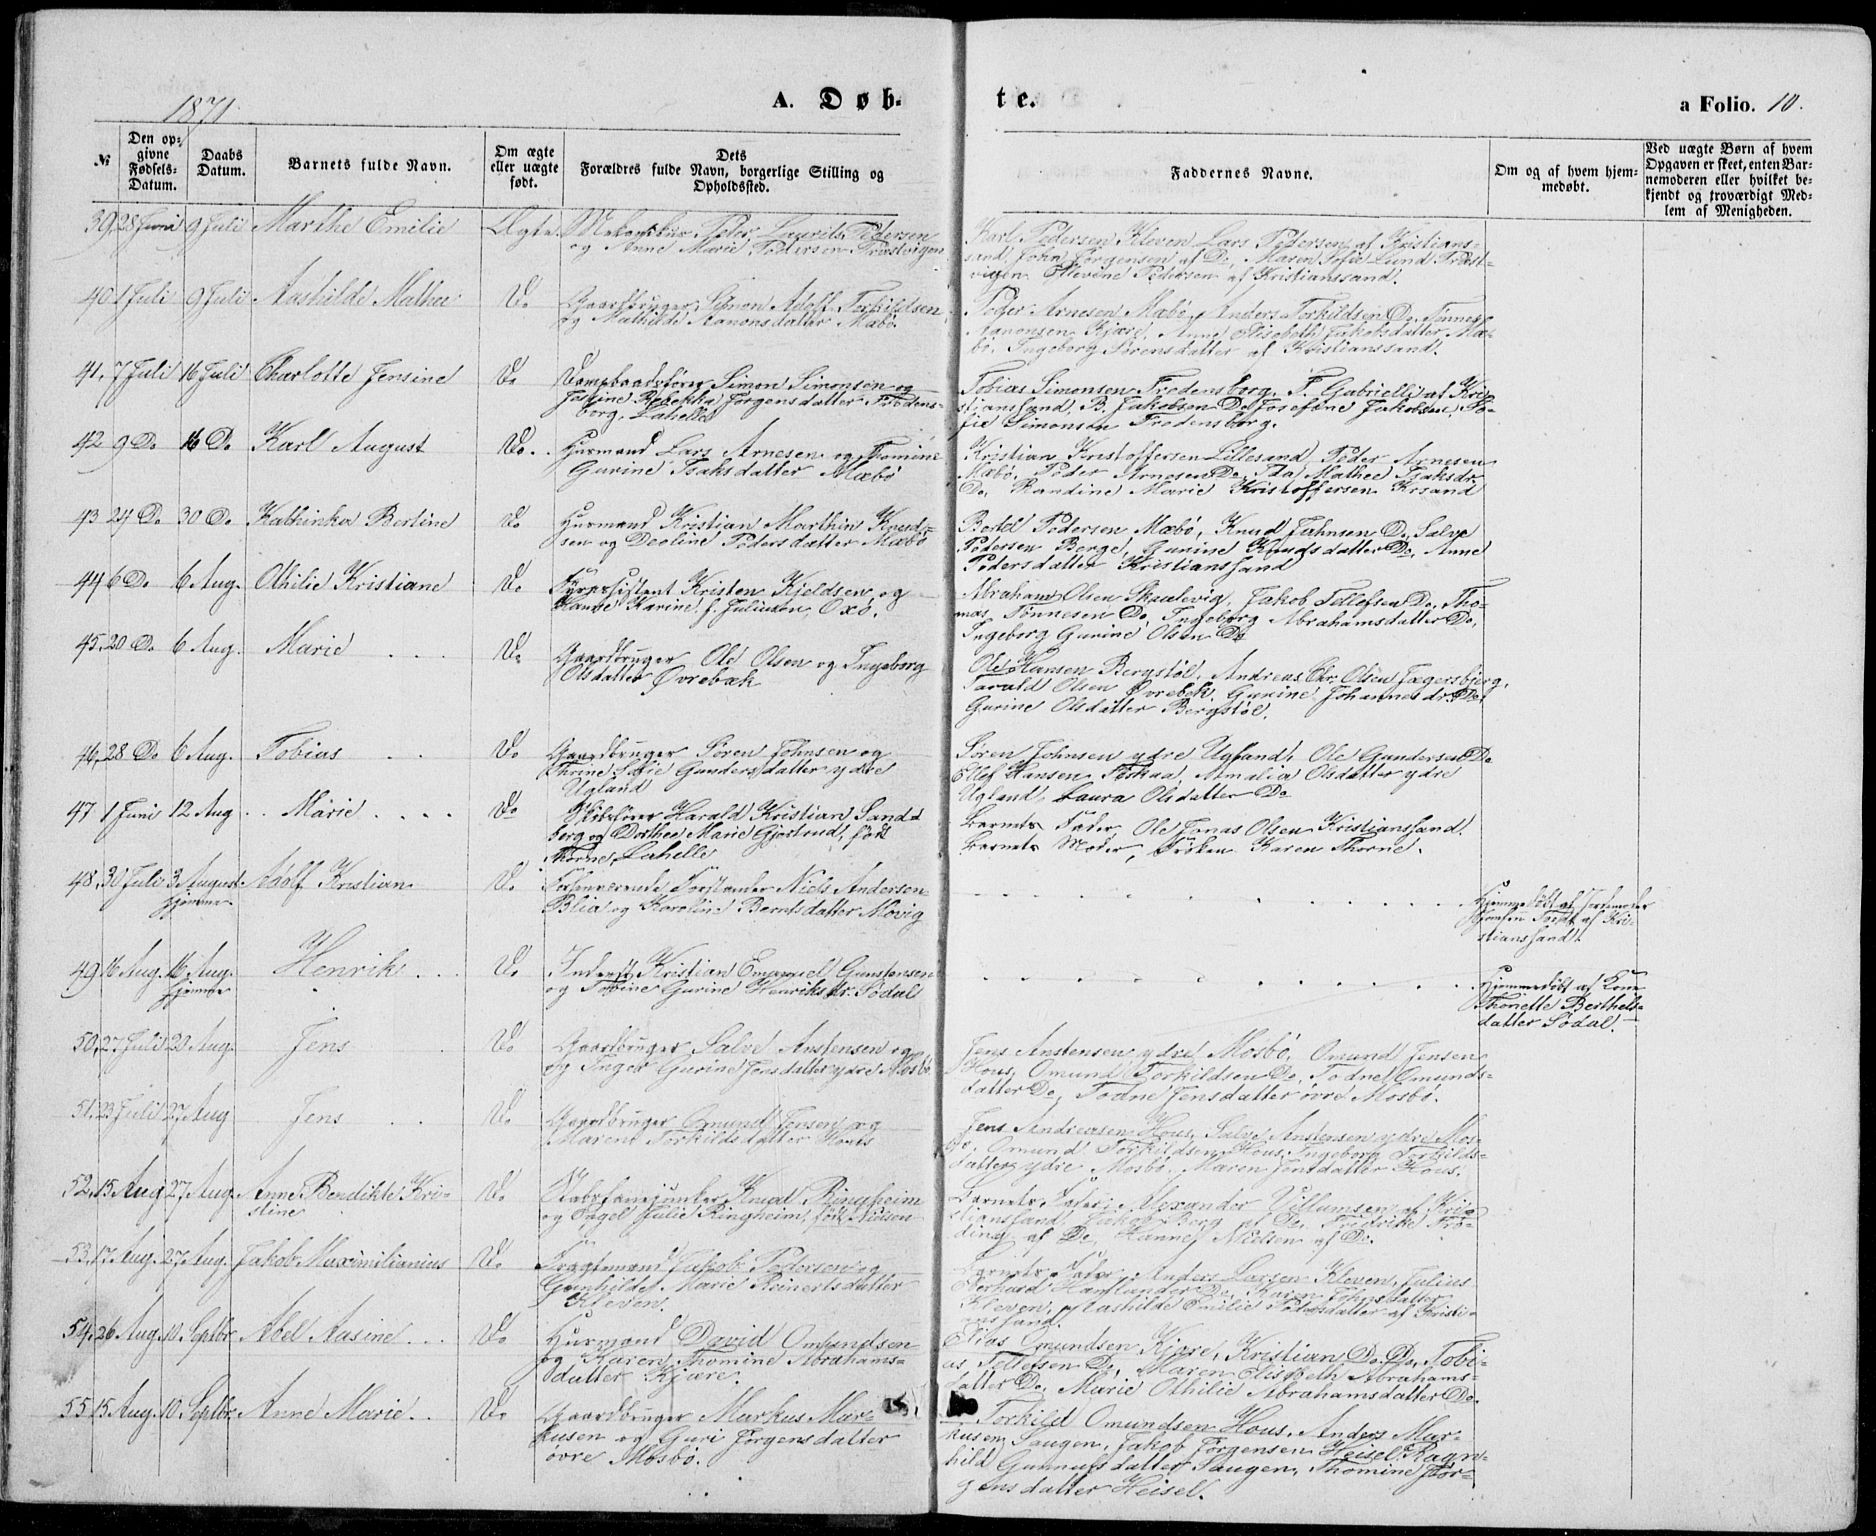 1871.
A. Døb-
te.
a Folio. 10.
№
Den op-
givne
Fødsels-
Datum.
Daabs
Datum.
Barnets fulde Navn.
Om ægte
eller uægte
født.
Dets
Forældres fulde Navn, borgerlige Stilling og
Opholdssted.
Faddernes Navne.
Om og af hvem hjem-
medøbt.
Ved uægte Børn af hvem
Opgaven er skeet, enten Bar-
nemoderen eller hvilket be-
kjendt og troværdigt Med-
lem af Menigheden.
39, 28 Juni 9 Juli Marthe Emilie Ægte Peder Laurits Pedersen
og Anne Marie Pedersen
Karl Pedersen Kleven Lars Pedersen af Kristians-
sand, John Jørgensen af Do, Maren Sofie Lund
Ellevine Pedersen af Kristianssand.
40 1 Juli 9 Juli Aashilde Mathee Do Gaardbruger Simon Adolf Torkildsen
og Mathilde Aanonsdatter Mæbø.
Peder Arnesen Mæbø, Anders Torkildsen Do, Tønnes
Aanonsen Kjære, Anne Elisebeth Jakobsdatter Mæ-
bø, Ingeborg Sørensdatter af Kristianssand.
41, 7 Juli 16 Juli Charlotte Jensine Do Dampbaadsfører Simon Simonsen og
Josine Rebekka Jørgensdatter Fredens-
borg, Lahelle
Tobias Simonsen Fredensborg, F. Gabrielli af Kri-
stianssand, B. Jakobsen Do Josefine Jakobsen, So-
fie Simonsen Fredensborg.
42 9 Do 16 Do Karl August Do. Husmand Lars Arnesen og Tomine
Gurine Isaksdatter Mæbø
Kristian Kristoffersen Lillesand, Peder Arnesen
Mæbø, Peder Arnesen Do, Ida Mathee Isaksdr.
Do, Randine Marie Kristoffersen Krsand
43 24 Do 30 Do Kathinka Bertine Do Husmand Kristian Marthin Knud-
sen og Deoline Pedersdatter Mæbø
Bertel Pedersen Mæbø, Knud Jahnsen Do, Salve
Pedersen Berge, Gurine Knudsdatter Do, Anne
Pedersdatter Kristianssand
44 6 Do 6 Aug. Othilie Kristiane Do Fyrassistent Kristen Kjeldsen og
Hanne Karine f. Juliusen, Oxø.
Abraham Olsen Skaalevig, Jakob Tellefsen Do, Tho-
mas Tønnesen Do, Ingeborg Abrahamsdatter Do,
Ingeborg Gurine Olsen Do
45, 20 Do 6 Aug. Marie Do Gaardbruger Ole Olsen og Ingeborg
Olsdatter Øvrebæk
Ole Hansen Bergstøl, Andreas Chr. Olsen Jægersbjerg,
Tarald Olsen Øvrebek, Gurine Johannesdr. Do,
Gurine Olsdatter Bergstøl.
46, 28 Do 6 Aug. Tobias Do Gaardbruger Søren Johnsen og
Thrine Sofie Gundersdatter ydre
Ugland
Søren Johnsen ydre Ugland, Ole Gundersen Do
Ellef Hansen Foskaa, Amalia Olsdatter ydre
Ugland, Laura Olsdatter Do
47 1 Juni 12 Aug. Marie Do Skibsfører Harald Kristian Sand-
berg og Dorthee Marie Gjertrud, født
Thorne, Lahelle
Barnets Fader, Ole Jonas Olsen Kristianssand.
Barnets Moder, Frøken Karen Thorne.
48, 30 Juli 3 August hjemme Adolf Kristian Do Forhenværende Forstander Niels Andersen
Blia og Karoline Berntsdatter Movig
Hjemmedøbt af Jordmoder
af Kri-
stianssand.
49 16 Aug. 16 Aug. hjemme Henrik Do Inderst Kristian Emanuel Gunstensen
og Tobine Gurine Henriksdr. Sødal
Hjemmedøbt af Kone
Thonette Berthels-
datter Sødal.
50, 27 Juli 20 Aug. Jens Do Gaardbruger Salve Anstensen og
og Inger Gurine Jensdatter ydre Mosbø
Jens Anstensen ydre Mosbø, Omund Jensen
Hous, Omund Torkildsen Do, Todne Omunds-
datter Do, Todne Jensdatter øvre Mosbø.
51, 23 Juli 27 Aug Jens Do Gaardbruger Omund Jensen og
Maren Torkildsdatter Hous
Jens Andreasen Hous, Salve Anstensen ydre Mos-
bø, Omund Torkildsen Hous, Ingeborg Torkilds-
datter ydre Mosbø, Maren Jensdatter Hous.
52, 15 Aug 27 Aug. Anne Bendikte Kri-
stine Do Stabsfanejunker Knud Ringheim
og Engel Julie Ringheim, født Nielsen
Barnets Fader, Alexander Villumsen af Kri-
stianssand, Jakob Berg af Do, Fredrikke Frø-
ding af Do, Hanne Nielsen af Do.
53, 17 Aug. 27 Aug. Jakob Maximilianius Do Fragtemand Jakob Pedersen og
Gunhilde Marie Reinertsdatter
Kleven.
Barnets Fader, Anders Larsen Kleven, Julius
Gerhard Do, Karen Johnsdatter
Kleven, Aashilde Emilie Pedersdatter af Kristi-
anssand.
54, 26 Aug. 10 Septbr. Abel Aasine Do Husmand David Omundsen
og Karen Thomine Abrahams-
datter Kjære.
Elias Omundsen Kjære, Kristian Do. Do, Tobi-
as Tellefsen Do, Maren Elisebeth Abrahams-
datter Do, Marie Othilie Abrahamsdatter Do.
55 15 Aug. 10 Septbr. Anne Marie Do Gaardbruger Markus Mar-
kusen og Guri Jørgensdatter
øvre Mosbø.
Torkild Omundsen Hous, Anders Mar-
kusen Haugen, Jakob Jørgensen Heisel, Ragn-
hild Gunnufsdatter Haugen, Thomine Jør-
gensdatter Heisel.